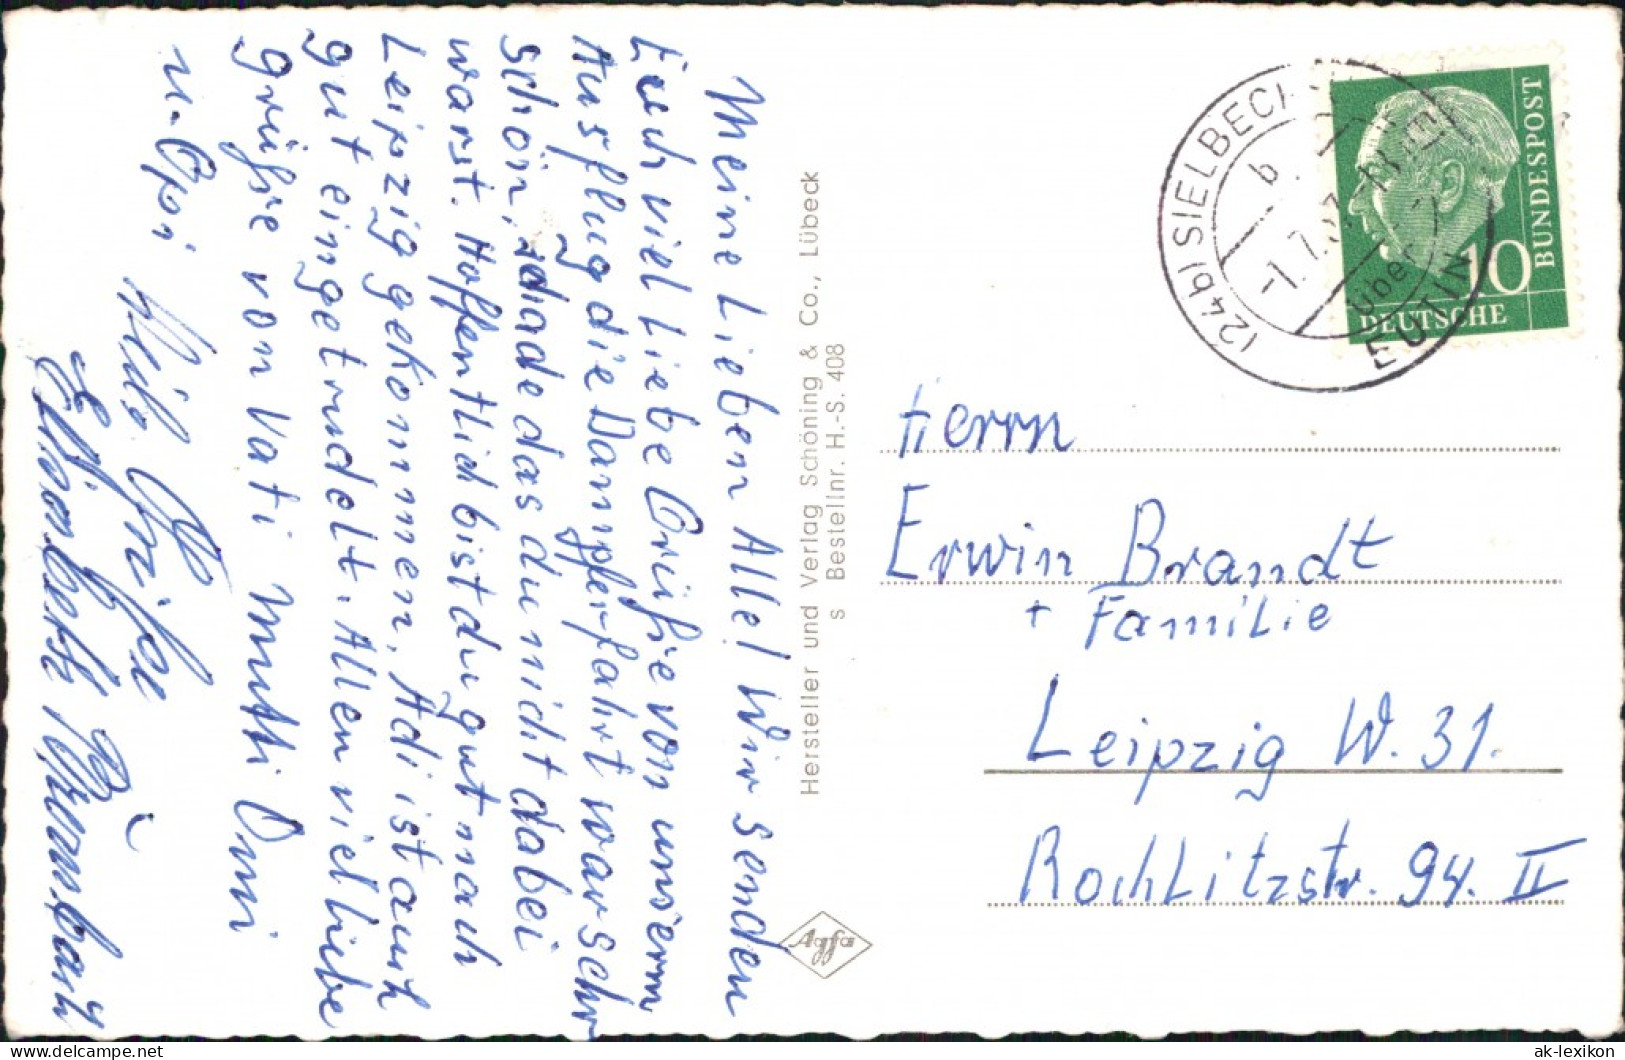 Meine Lieben Alle! Wir senden
Euch viel Liebe Grüße von unserm
Ausflug die Dampferfahrt war sehr
schön, schade das du nicht dabei
warst. Hoffentlich bist du gut nach
Leipzig gekommen, Adi ist auch
gut eingetrudelt. Allen viel liebe
grüße von Vati Mutti Omi
u. Opi
Herrn
Erwin Brandt
+ Familie
Leipzig W. 31.
Rochlitzstr. 94. II
Hersteller und Verlag Schöning & Co., Lübeck
s Bestellnr. H.-S. 408
Agfa
(24b) SIELBECK
b
-1.7.
über
EUTIN
DEUTSCHE
BUNDESPOST
10
www.delcampe.net
ak-lexikon